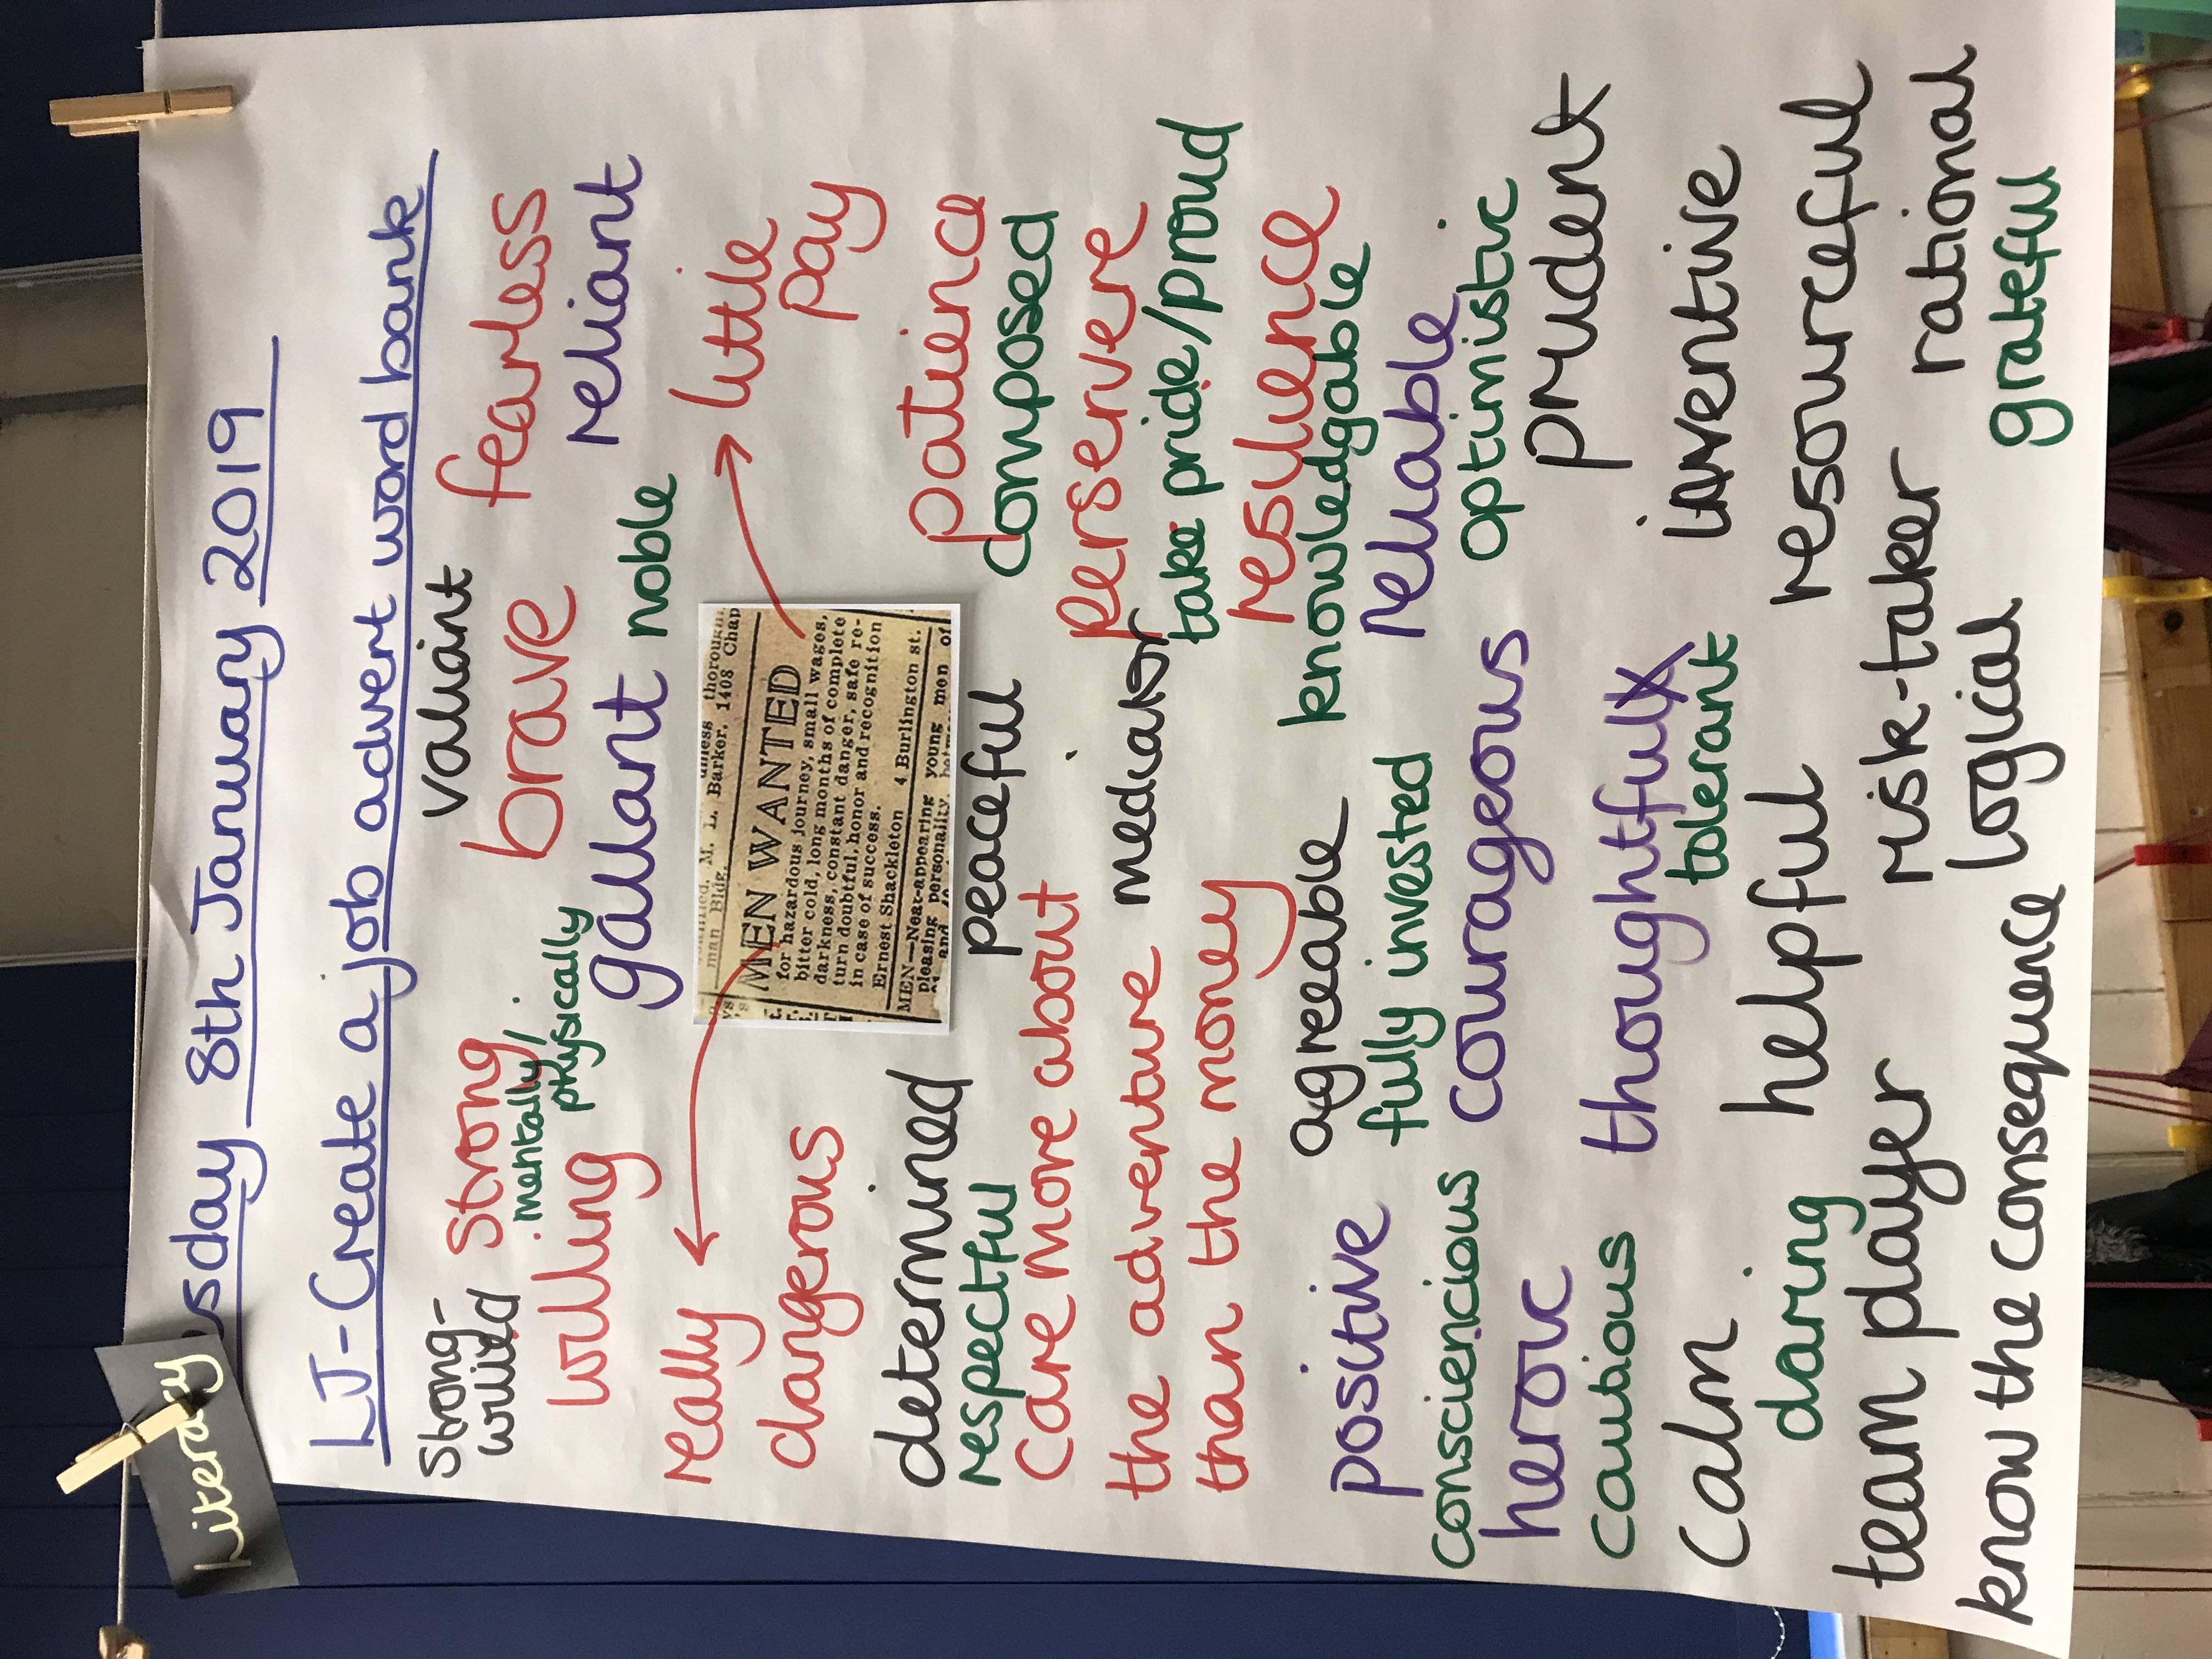 Literacy
sday 8th January 2019
LJ-Create a job advert word bank
Strong-
willed
Strong
mentally/
physically
valiant
fearless
willing
brave
reliant
gallant
noble
really
dangerous
little
pay
man Bldg. M. L. Barker, 1408 Chap
MEN WANTED
for hazardous journey, small wages,
bitter cold, long months of complete
darkness, constant danger, safe re-
turn doubtful, honor and recognition
in case of success.
Ernest Shackleton 4 Burlington st.
MEN—Neat-appearing young men of
pleasing personality,
determined
peaceful
patience
respectful
composed
Care more about
the adventure
than the money
mediator
perservere
take pride/proud
agreeable
resilience
knowledgable
positive
fully invested
reliable
consciencious
courageous
optimistic
heroic
prudent
cautious
thoughtful
tolerant
inventive
calm
helpful
resourceful
daring
team player
risk-taker
rational
know the consequence
logical
grateful